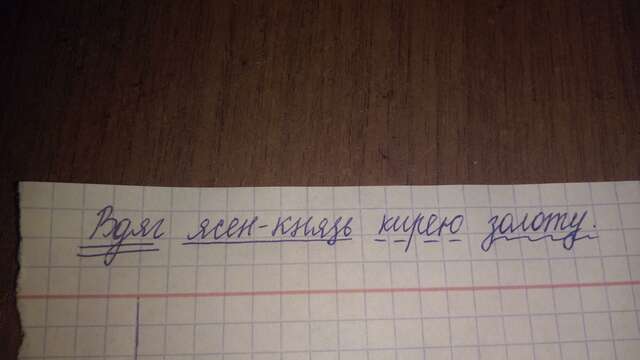 Вдяг ясен-князь кирею золоту.